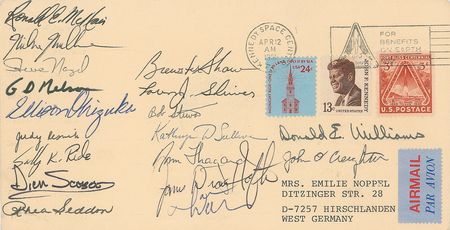 Ronald E. McNair
Mike Mullane
Steve Nagel
G D Nelson
Ellison Onizuka
Judy Resnik
Sally K. Ride
Dick Scobee
Rhea Seddon
Brewster Shaw
Loren Shriver
Bob Stewart
Kathryn D Sullivan
Norm Thagard
James D van Hoften
Donald E Williams
John O Creighton
KENNEDY SPACE CENTER
APR 12
AM
FOR
BENEFITS
ON EARTH
USA 24c
13c
UNITED STATES
JOHN KENNEDY
FORT BLISS CENTENNIAL
U.S. POSTAGE
MRS. EMILIE NOPPEL
DITZINGER STR. 28
D-7257 HIRSCHLANDEN
WEST GERMANY
AIRMAIL
PAR AVION